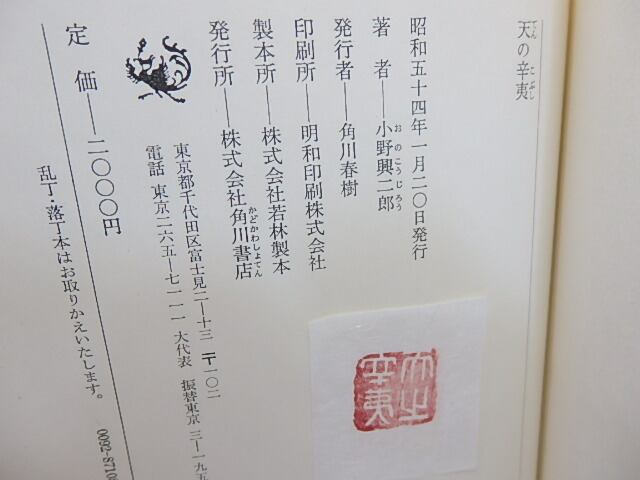 天の辛夷
てん こぶし
昭和五十四年一月二〇日発行
著者――小野興二郎
おのこうじろう
発行者――角川春樹
印刷所――明和印刷株式会社
製本所――株式会社若林製本
発行所――株式会社角川書店
かどかわしょてん
東京都千代田区富士見二―十三 〒一〇二
電話 東京二六五―七一一一 大代表 振替東京 三―一九五
定価――二〇〇〇円
乱丁・落丁本はお取りかえいたします。
0092-8710
天之辛夷